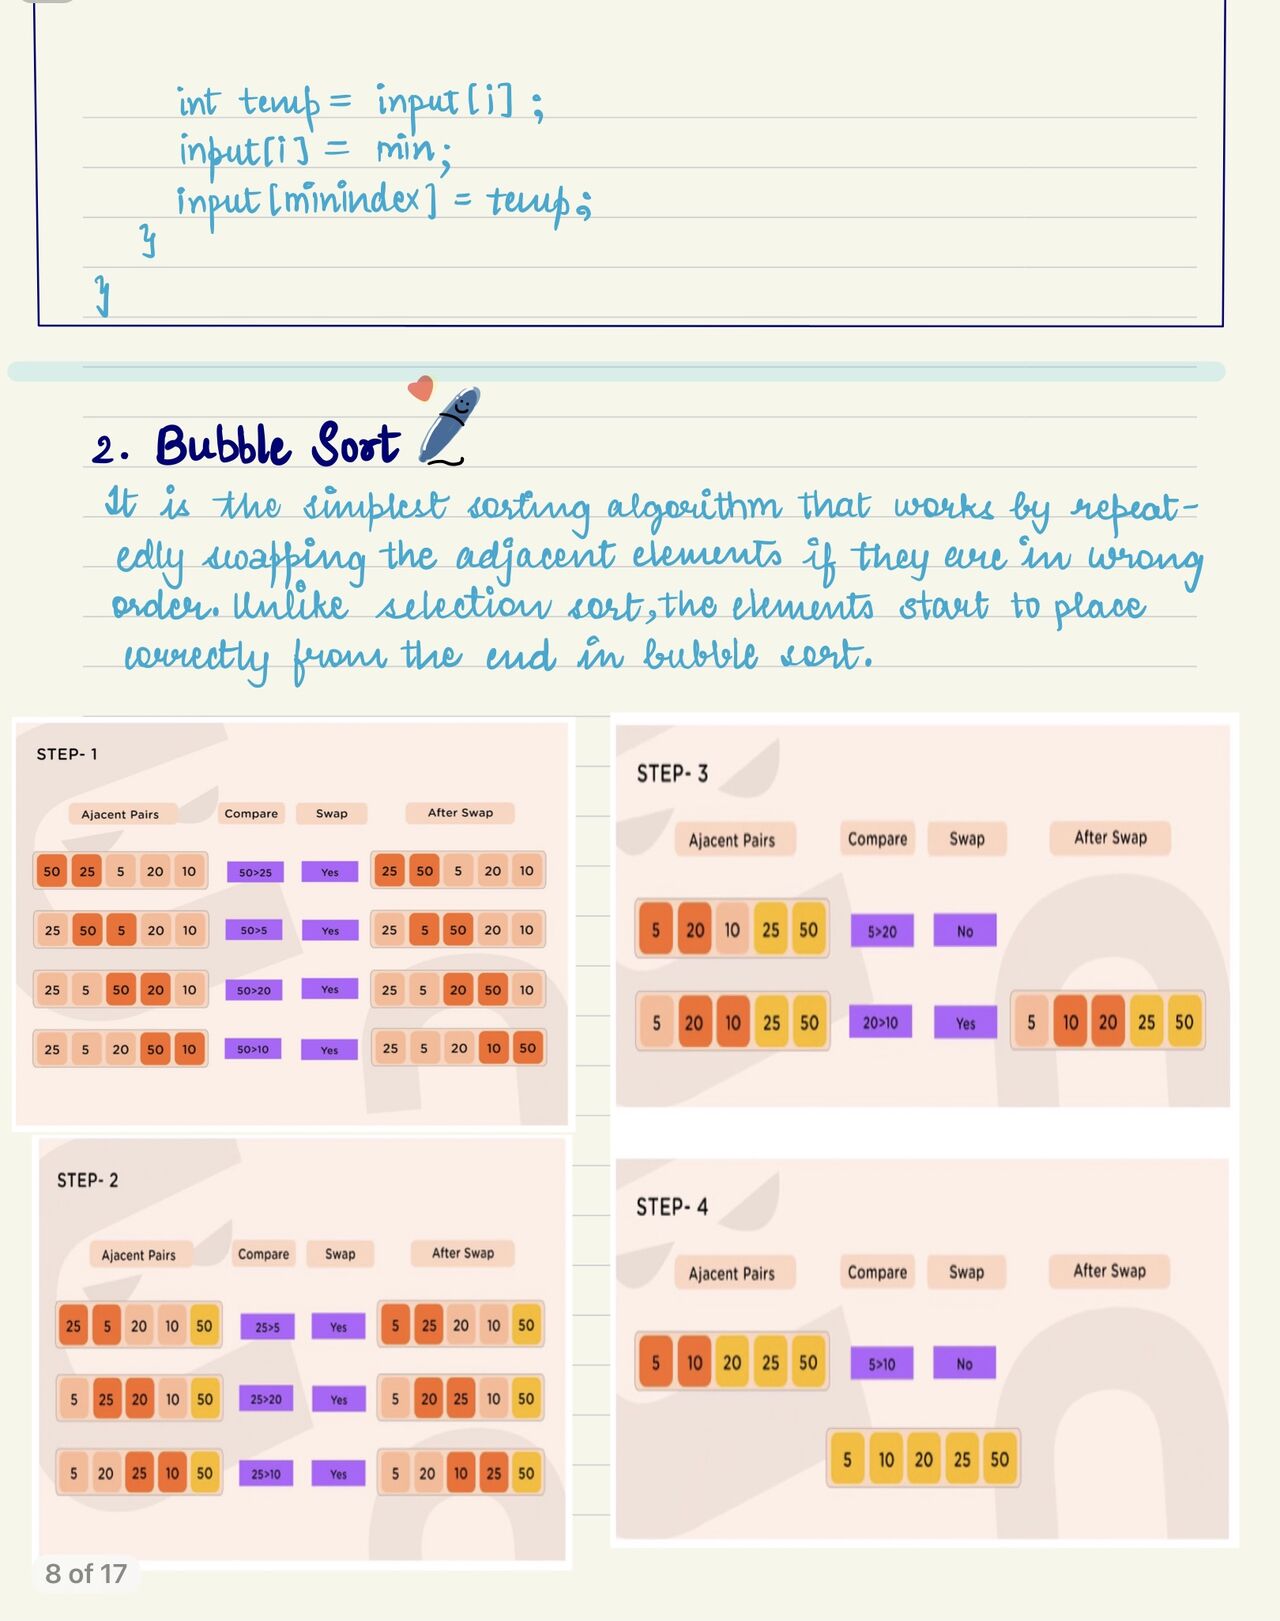 int temp = input[i];
input[i] = min;
input[minindex] = temp;
}
}
2. Bubble Sort
It is the simplest sorting algorithm that works by repeat-
edly swapping the adjacent elements if they are in wrong
order. Unlike selection sort, the elements start to place
correctly from the end in bubble sort.
STEP- 1
Ajacent Pairs Compare Swap After Swap
50 25 5 20 10 50>25 Yes 25 50 5 20 10
25 50 5 20 10 50>5 Yes 25 5 50 20 10
25 5 50 20 10 50>20 Yes 25 5 20 50 10
25 5 20 50 10 50>10 Yes 25 5 20 10 50
STEP- 2
Ajacent Pairs Compare Swap After Swap
25 5 20 10 50 25>5 Yes 5 25 20 10 50
5 25 20 10 50 25>20 Yes 5 20 25 10 50
5 20 25 10 50 25>10 Yes 5 20 10 25 50
STEP- 3
Ajacent Pairs Compare Swap After Swap
5 20 10 25 50 5>20 No
5 20 10 25 50 20>10 Yes 5 10 20 25 50
STEP- 4
Ajacent Pairs Compare Swap After Swap
5 10 20 25 50 5>10 No
5 10 20 25 50
8 of 17